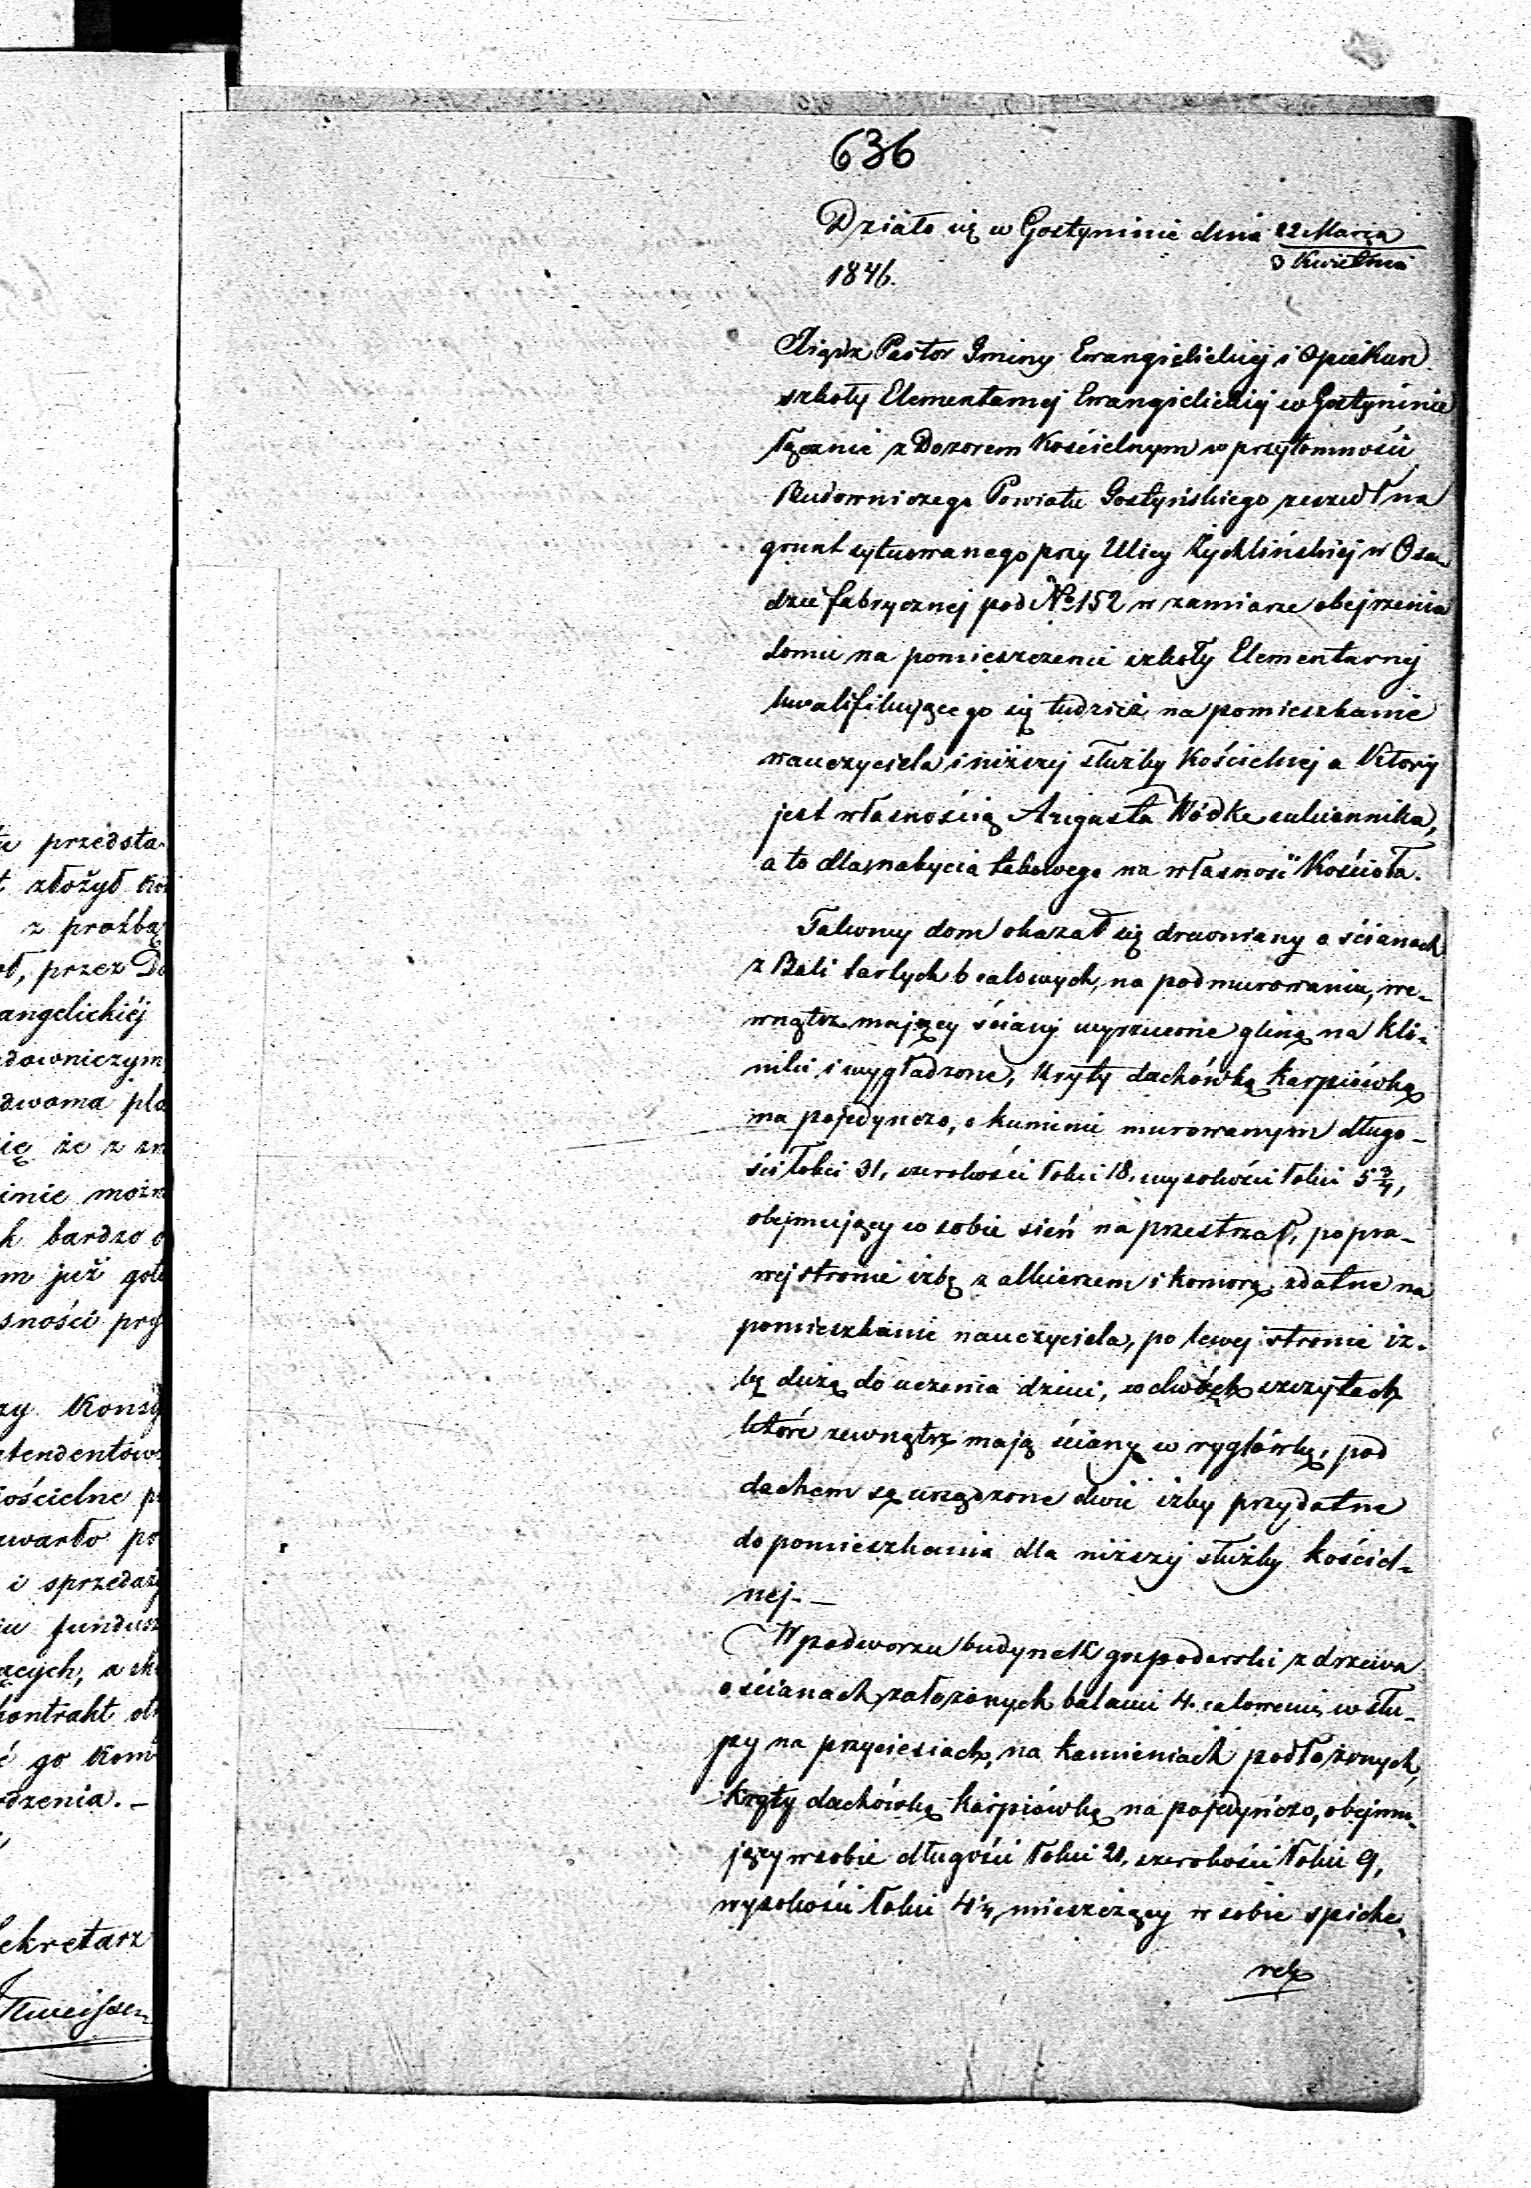 636
Działo się w Gostyninie dnia 22 Marca
3 Kwietnia
1846.
Xiądz Pastor Gminy Ewangielickiej i Opiekun
szkoły Elementarnej Ewangielickiej w Gostyninie
łącznie z Dozorem Kościelnym w przytomności
Budowniczego Powiatu Gostyńskiego zeszedł na
grunt sytuowanego przy Ulicy Żychlińskiej w Osa-
dzie fabrycznej pod No 152 w zamiarze obejrzenia
domu na pomieszczenie szkoły Elementarnej
kwalifikującego się tudzież na pomieszkanie
nauczyciela i niższej służby Kościelnej a który
jest własnością Augusta Wódke sukiennika,
a to dla nabycia takowego na własność Kościoła.
Takowy dom okazał się drewniany o ścianach
z Bali tartych 6 calowych, na podmurowaniu, we-
wnątrz mający ściany wyrzucone gliną na kli-
niki i wygładzone, kryty dachówką karpiówką
na pojedynczo, o kominie murowanym długo-
ści łokci 31, szerokości łokci 18, wysokości łokci 5 3/4,
obejmujący w sobie sień na przestrzał, po pra-
wej stronie izbę z alkierzem i komorą zdatne na
pomieszkanie nauczyciela, po lewej stronie iz-
bę dużą do uczenia dzieci, w dwóch szczytach
które zewnątrz mają ściany w ryglówkę, pod
dachem są urządzone dwie izby przydatne
do pomieszkania dla niższej służby kościel-
nej. —
W podworzu budynek gospodarski z drzewa
o ścianach założonych balami 4. calowemi w słu-
py na przyciesiach, na kamieniach podłożonych,
kryty dachówką karpiówką na pojedyńczo, obejmu-
jący w sobie długości łokci 21, szerokości łokci 9,
wysokości łokci 4 1/4, mieszczący w sobie spiche-
rek
przedsta-
złożył
z prośbą
przez Do
angelickiéj
downiczym
dwoma pla
że z
bardzo
już
Konsy
tendentów
ościelne
warto
i sprzedaży
fundusz
kontrakt
go Kom
dzenia. —
ekretarz